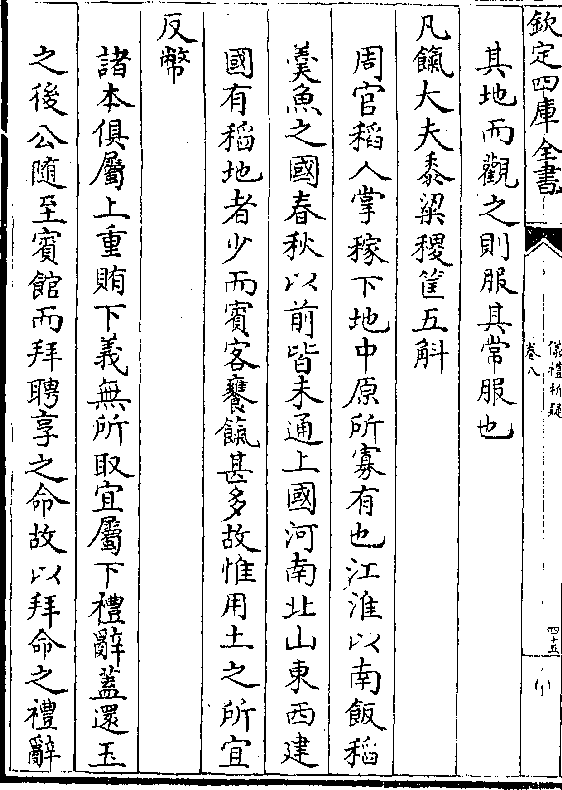 欽定四庫全書
儀禮析疑
卷八
四十五
其地而觀之則服其常服也
凡餼大夫黍粱稷筐五斛
周官稻人掌稼下地中原所寡有也江淮以南飯稻
羮魚之國春秋以前皆未通上國河南北山東西建
國有稻地者少而賓客饔餼甚多故惟用土之所宜
反幣
諸本俱屬上重賄下義無所取宜屬下禮辭葢還玉
之後公随至賓館而拜聘享之命故以拜命之禮辭